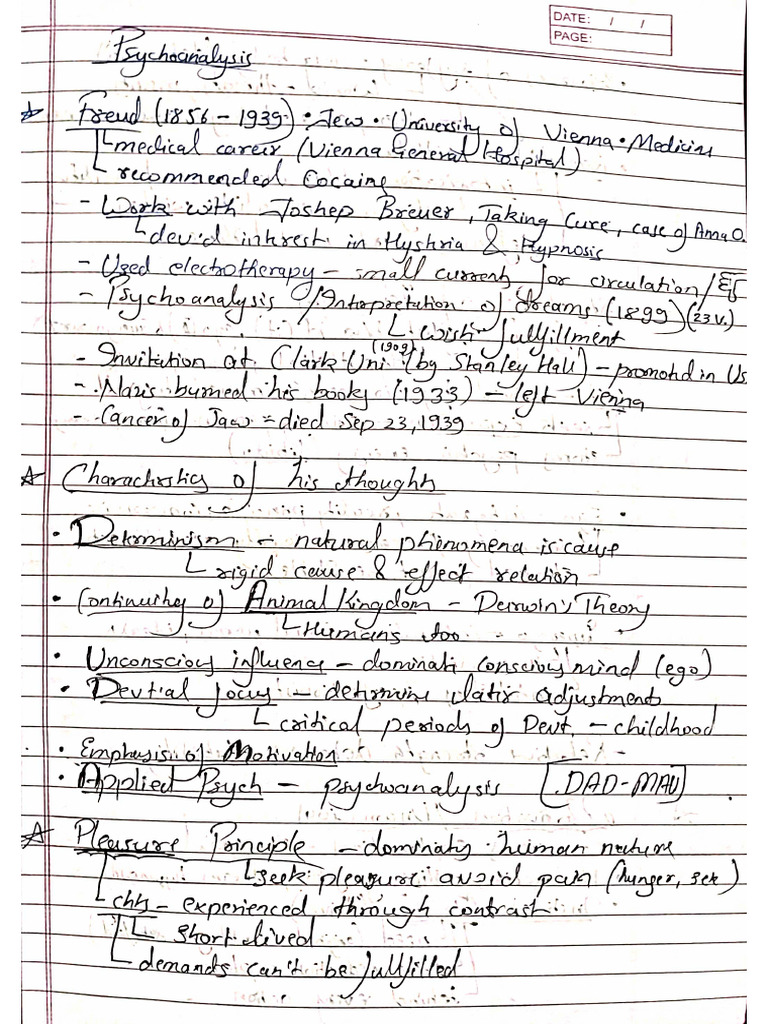 DATE: / /
PAGE:
Psychoanalysis
☆ Freud (1856 - 1939) • Jew • University of Vienna • Medicine
medical career (Vienna General Hospital)
recommended Cocaine
- Work with Joshep Breuer, Taking Cure, case of Anna O.
dev'd interest in Hyshria & Hypnosis
- Used electrotherapy - small currents for circulation/
- Psychoanalysis / Interpretation of dreams (1899) (23 v.)
wish fulfillment
- Invitation at Clark Uni (1909) (by Stanley Hall) - promotd in Us
- Nazis burned his books (1933) - left Vienna
- Cancer of Jaw = died Sep 23, 1939
☆ Charachrstics of his thoughts
• Determinism - natural phenomena is cause
rigid cause & effect relation
• Continuity of Animal Kingdom - Darwin's Theory
Humans too
• Unconscious influence - dominati conscious mind (ego)
• Devt'al focus - determine later adjustments
critical periods of Devt. - childhood
• Emphasis of Motivation
• Applied Psych - psychoanalysis [DAD-MAU]
☆ Pleasure Principle - dominats human nature
seek pleasure avoid pain (hunger, sex)
chs - experienced through contrast
short lived
demands can't be fullfilled